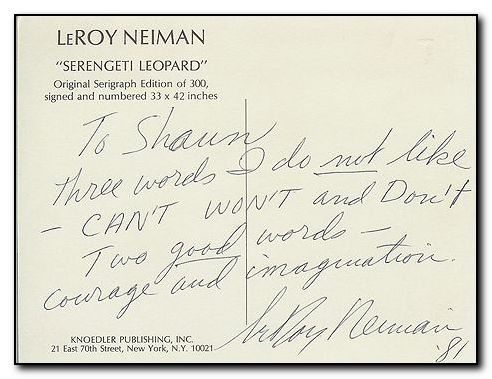 LEROY NEIMAN
"SERENGETI LEOPARD"
Original Serigraph Edition of 300,
signed and numbered 33 x 42 inches
To Shaun
three words I do not like
- CAN'T WON'T and Don't
Two good words -
courage and imagination.
LeRoy Neiman
'81
KNOEDLER PUBLISHING, INC.
21 East 70th Street, New York, N.Y. 10021